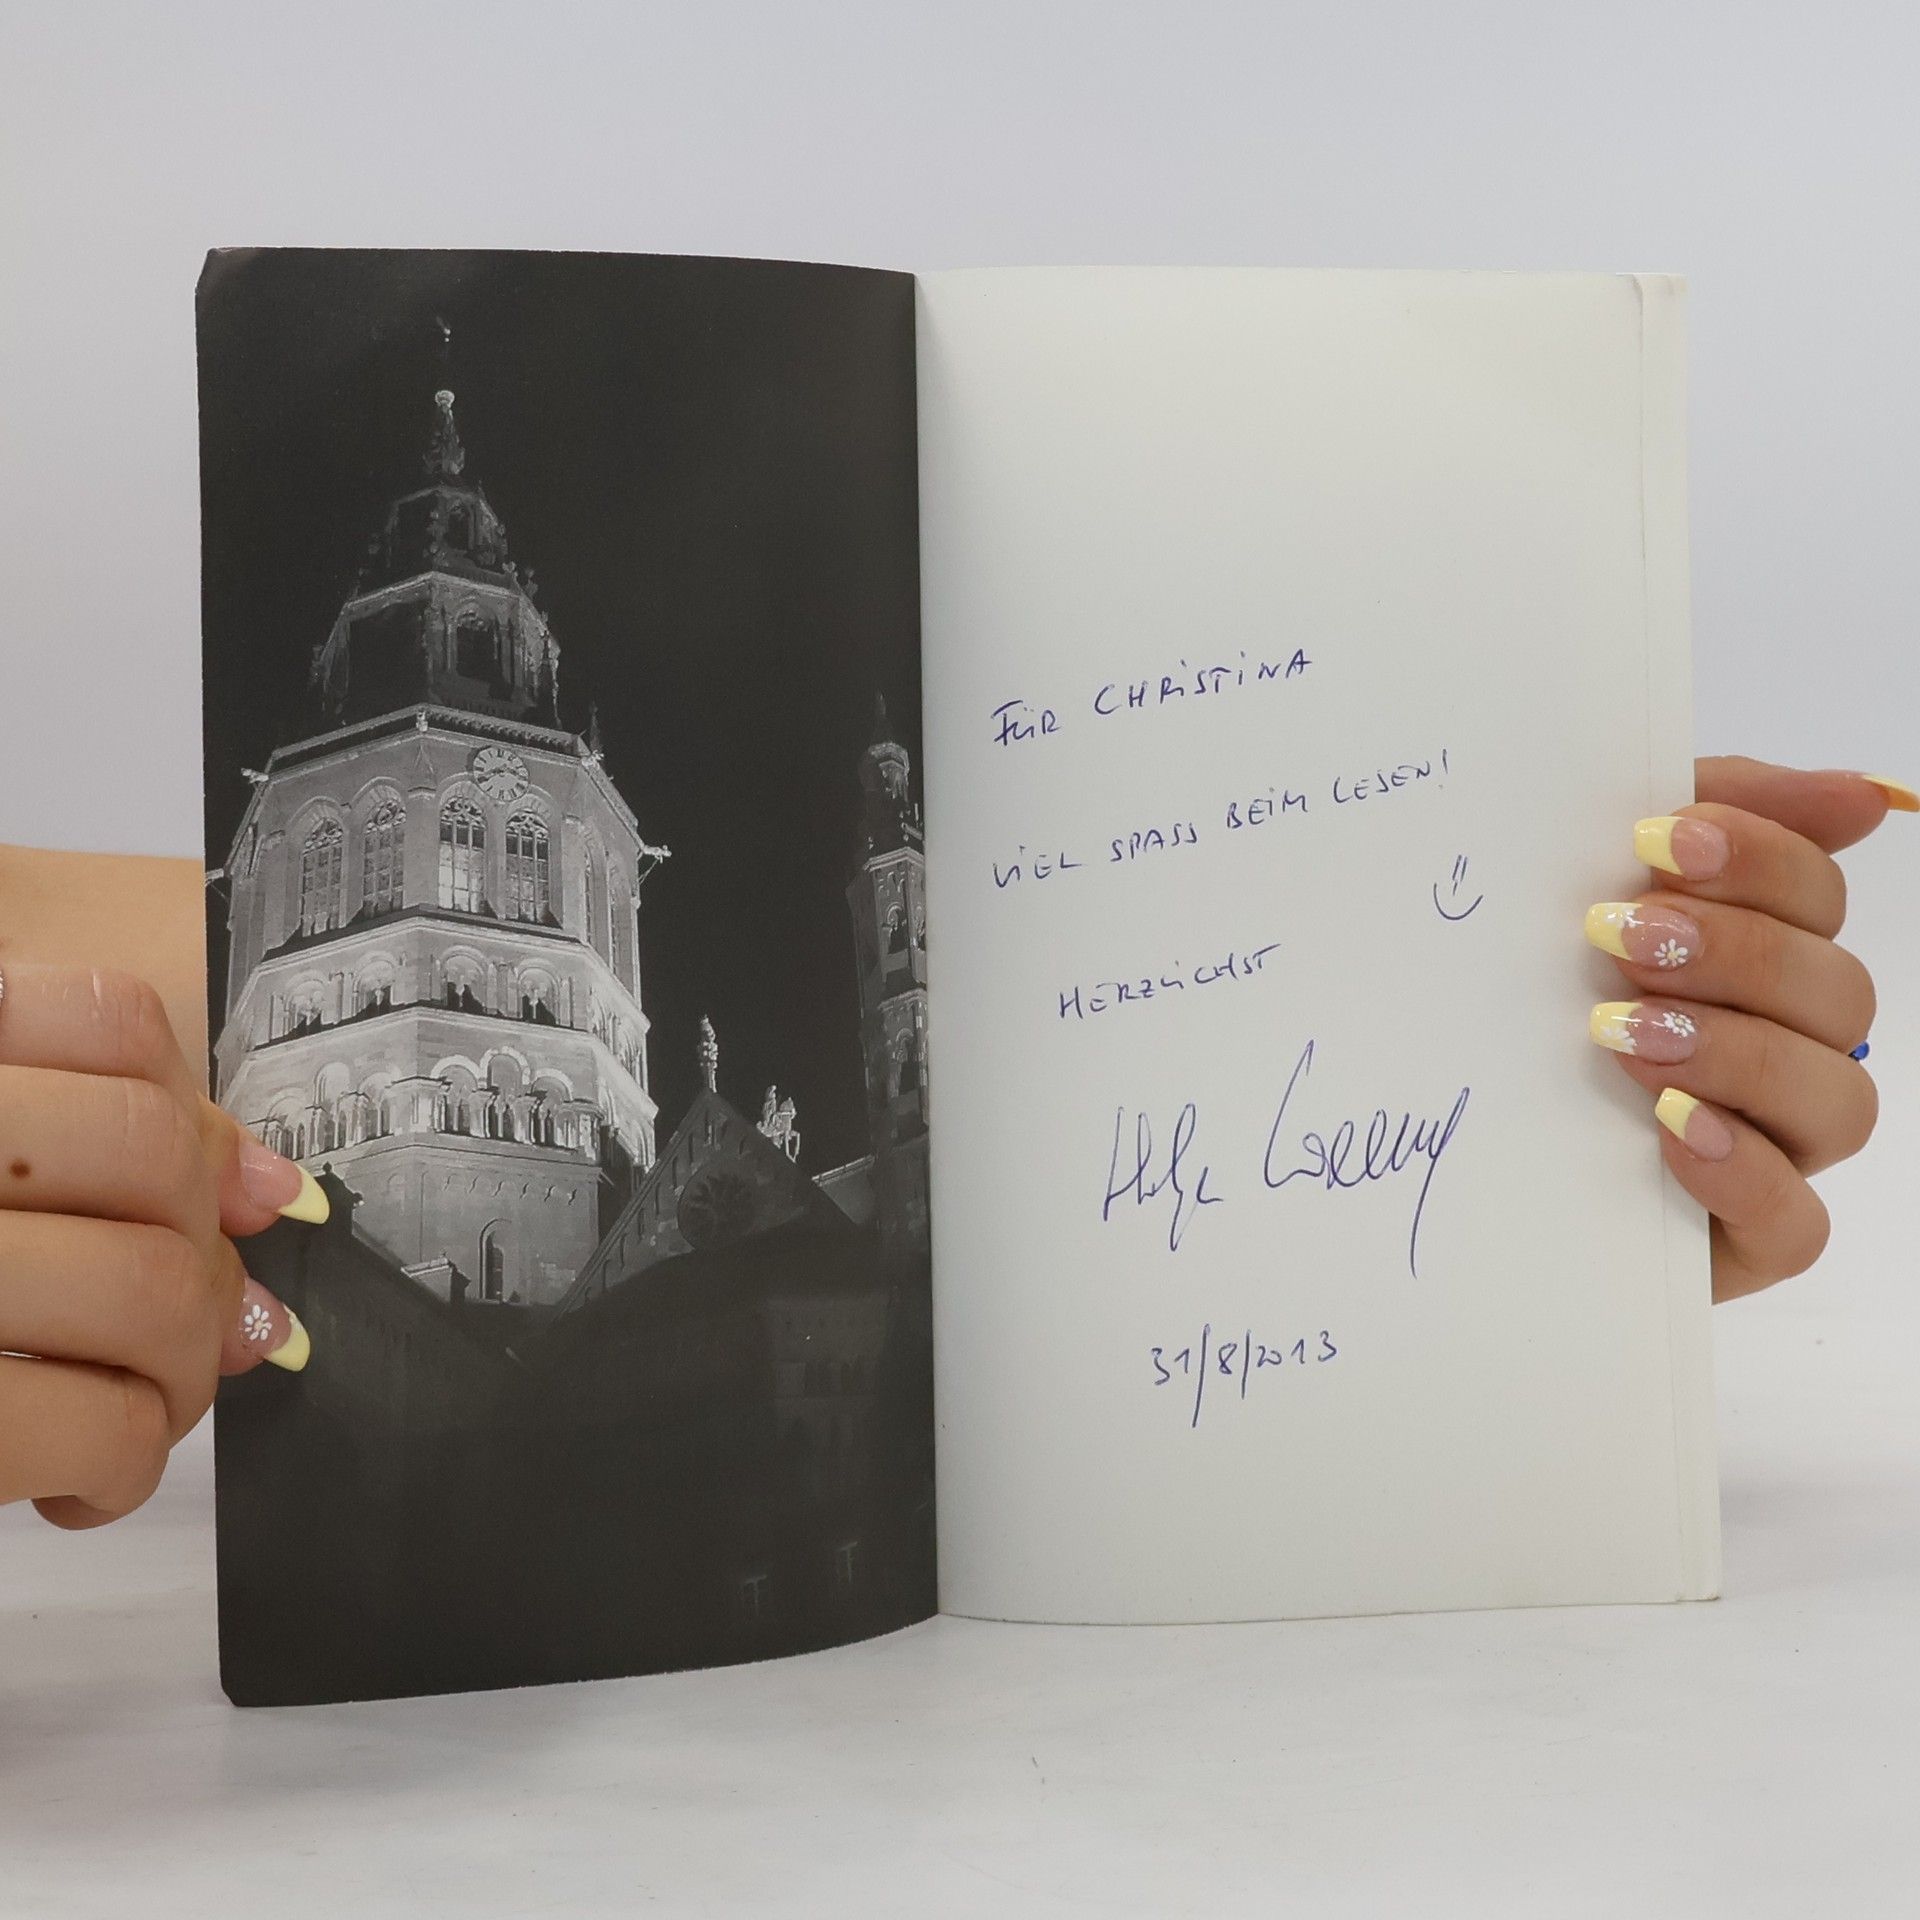 FÜR CHRISTINA
VIEL SPASS BEIM LESEN!
HERZLICHST
Helga
31/8/2013